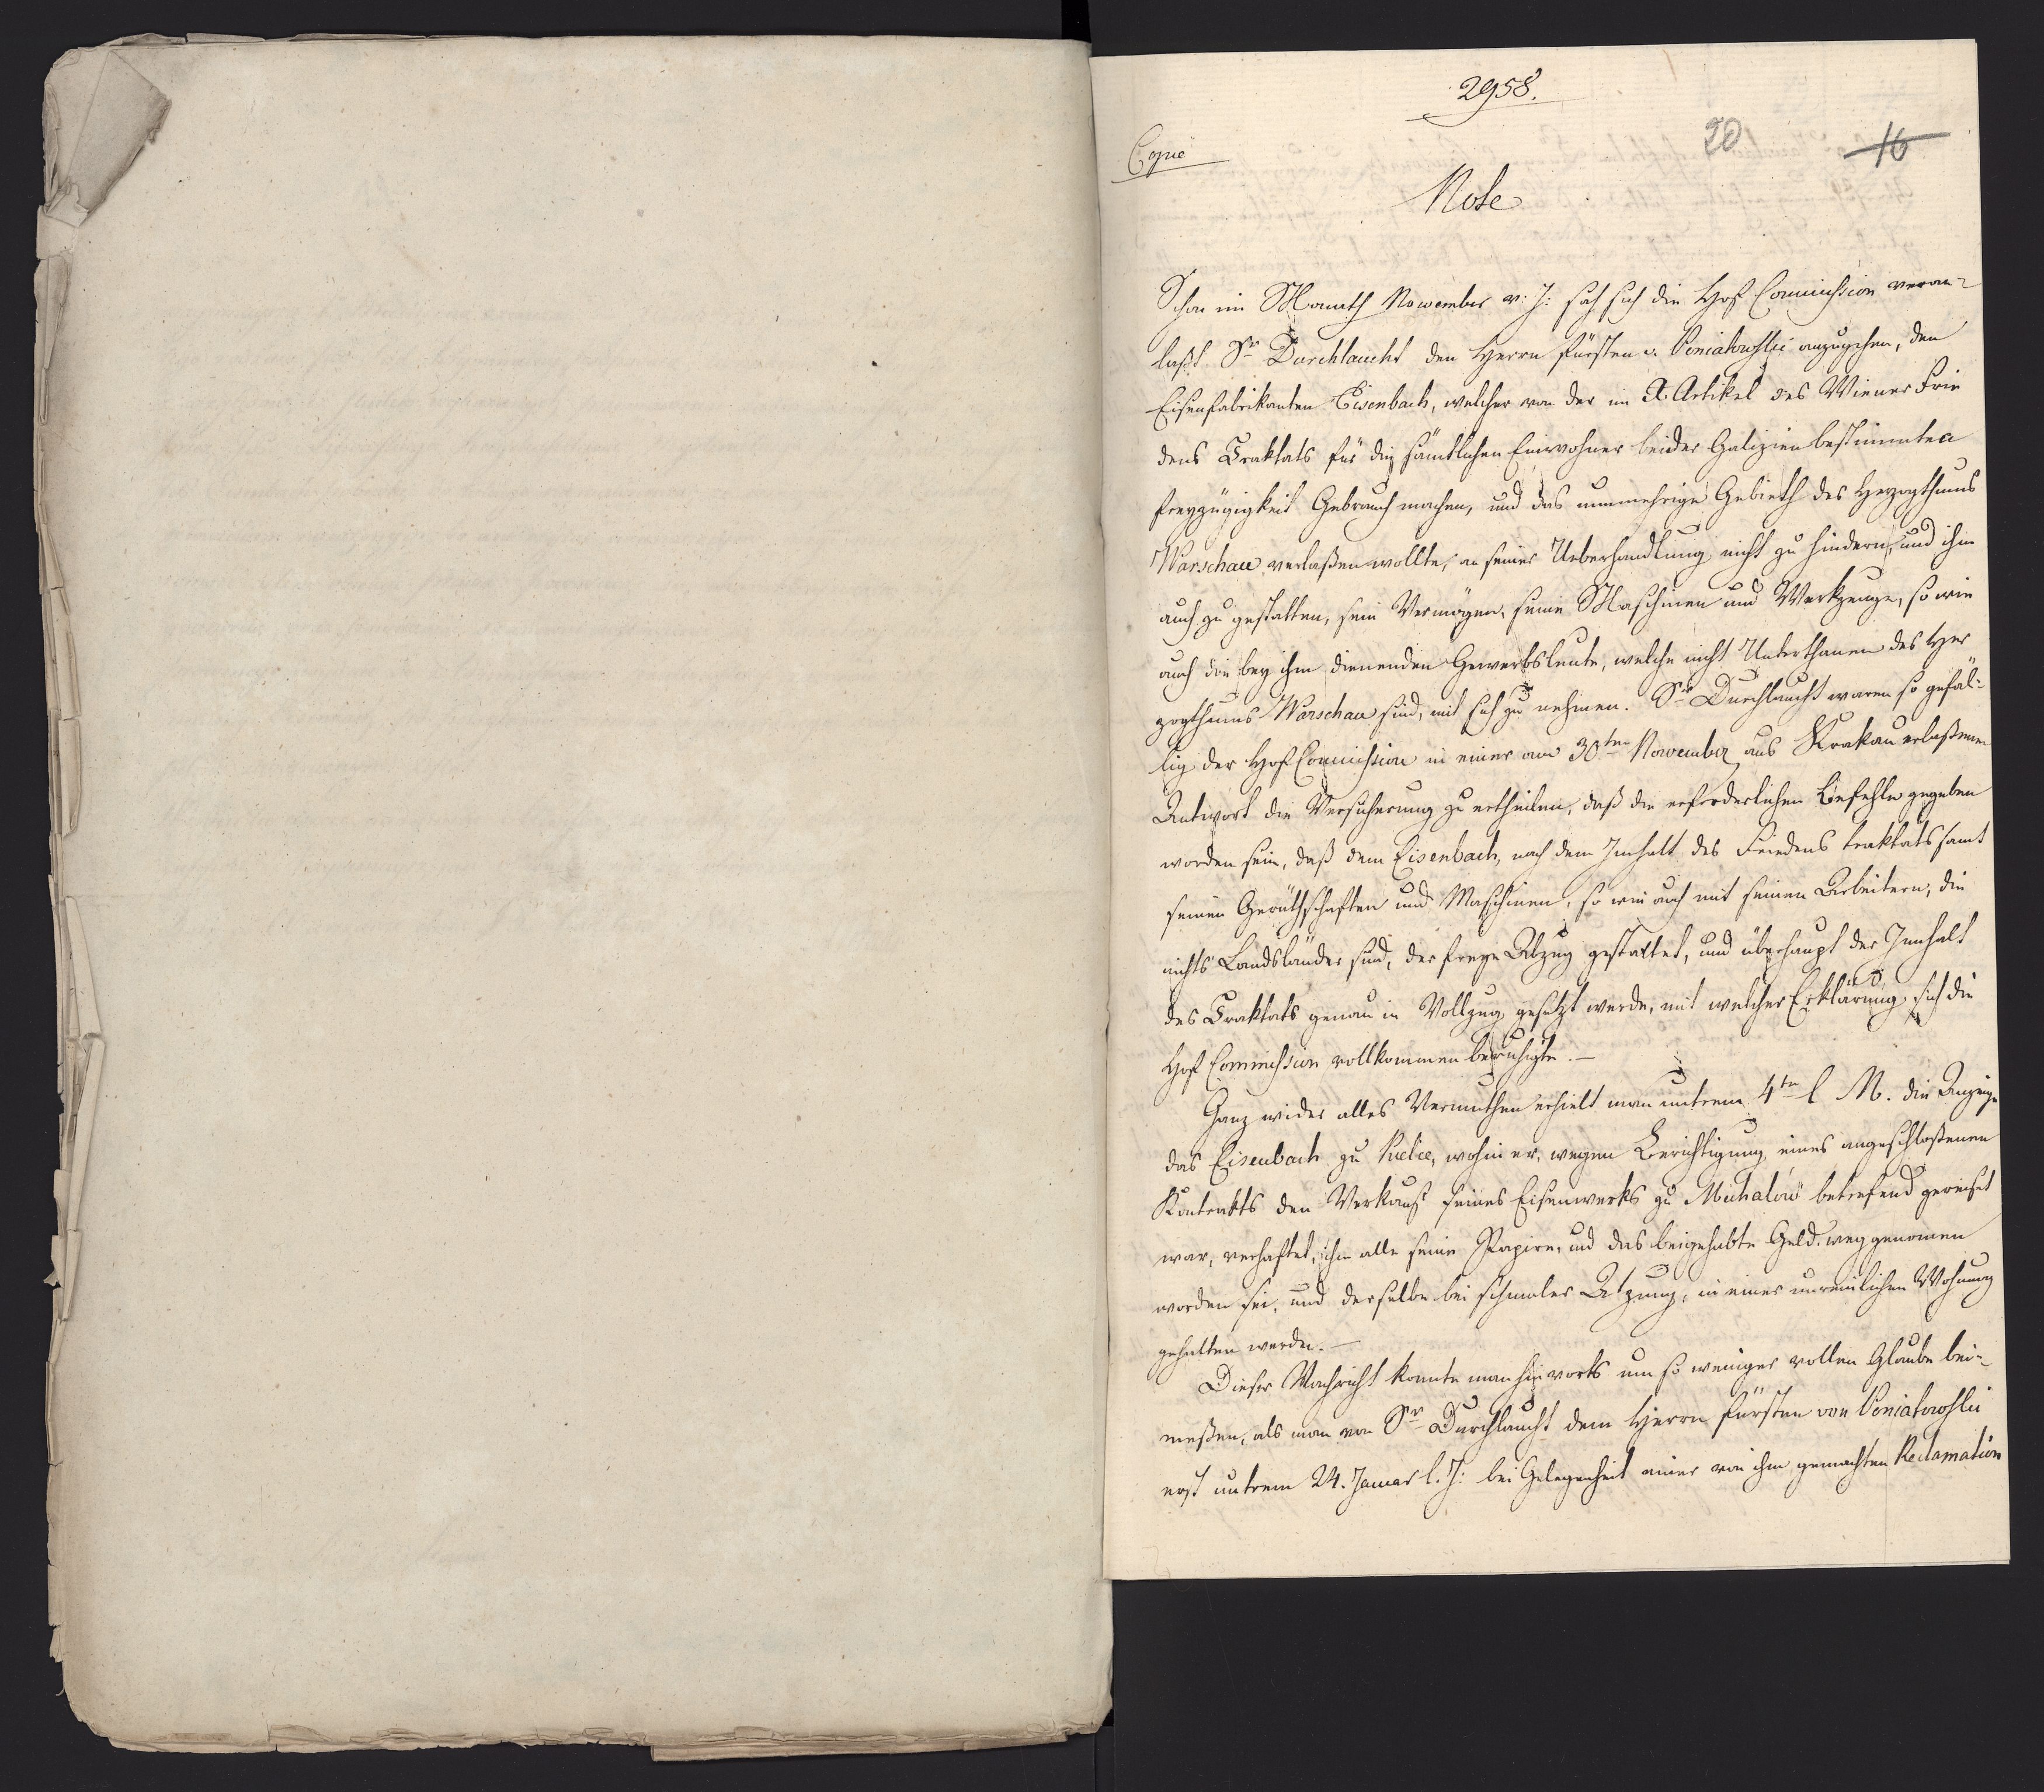 2958.
20
16
Copie
Note
Schon im Monath November v: J: sah sich die Hof Commission veran-
laßt Sr Durchlaucht den Herrn Fürsten v. Poniatowski anzugehen, den
Eisenfabrikanten Eisenbach, welcher von der im X. Artikel des Wiener Frie
dens Traktats für die sämtlichen Einwohner beider Galizien bestimmten
Freyzügigkeit Gebrauch machen, und das nunmehrige Gebieth des Herzogthums
Warschau verlaßen wollte, an seiner Ueberhandlung nicht zu hindern, und ihm
auch zu gestatten, sein Vermögen, seine Maschinen und Werkzeuge, so wie
auch die bey ihm dienenden Gewerbsleute, welche nicht Unterthanen des Her
zogthums Warschau sind, mit sich zu nehmen. Sr Durchlaucht waren so gefäl-
lig der Hof Commission in einer am 30ten November aus Krakau erlaßenen
Antwort die Versicherung zu ertheilen, daß die erforderlichen Befehle gegeben
worden sein, daß dem Eisenbach, nach dem Inhalt des Friedens traktats samt
seinen Geräthschaften und Maschinen, so wie auch mit seinen Arbeitern, die
nichts Landsländer sind, der freye Abzug gestattet, und überhaupt der Innhalt
des Traktats genau in Vollzug gesetzt werde, mit welcher Erklärung sich die
Hof Commission vollkommen beruhigte. —
Ganz wider alles Vermuthen erhielt man unterm 4ten l. M. die Anzeige
das Eisenbach zu Kielce, wohin er, wegen Berichtigung eines angeschloßenen
Kontrakts den Verkauf seines Eisenwerks zu Michalów betrefend gereiset
war, verhaftet, ihm alle seine Papire, und das beigehabte Geld weggenomen
worden sei, und derselbe bei schmaler Atzung, in einer unreinlichen Wohnung
gehalten werde. —
Dieser Nachricht konnte man hierorts um so weniger vollen Glaube bei-
meßen, als man von Sr Durchlaucht dem Herrn Fürsten von Poniatowski
erst unterm 24. Januar l. J: bei Gelegenheit einer von ihm gemachten Reclamation